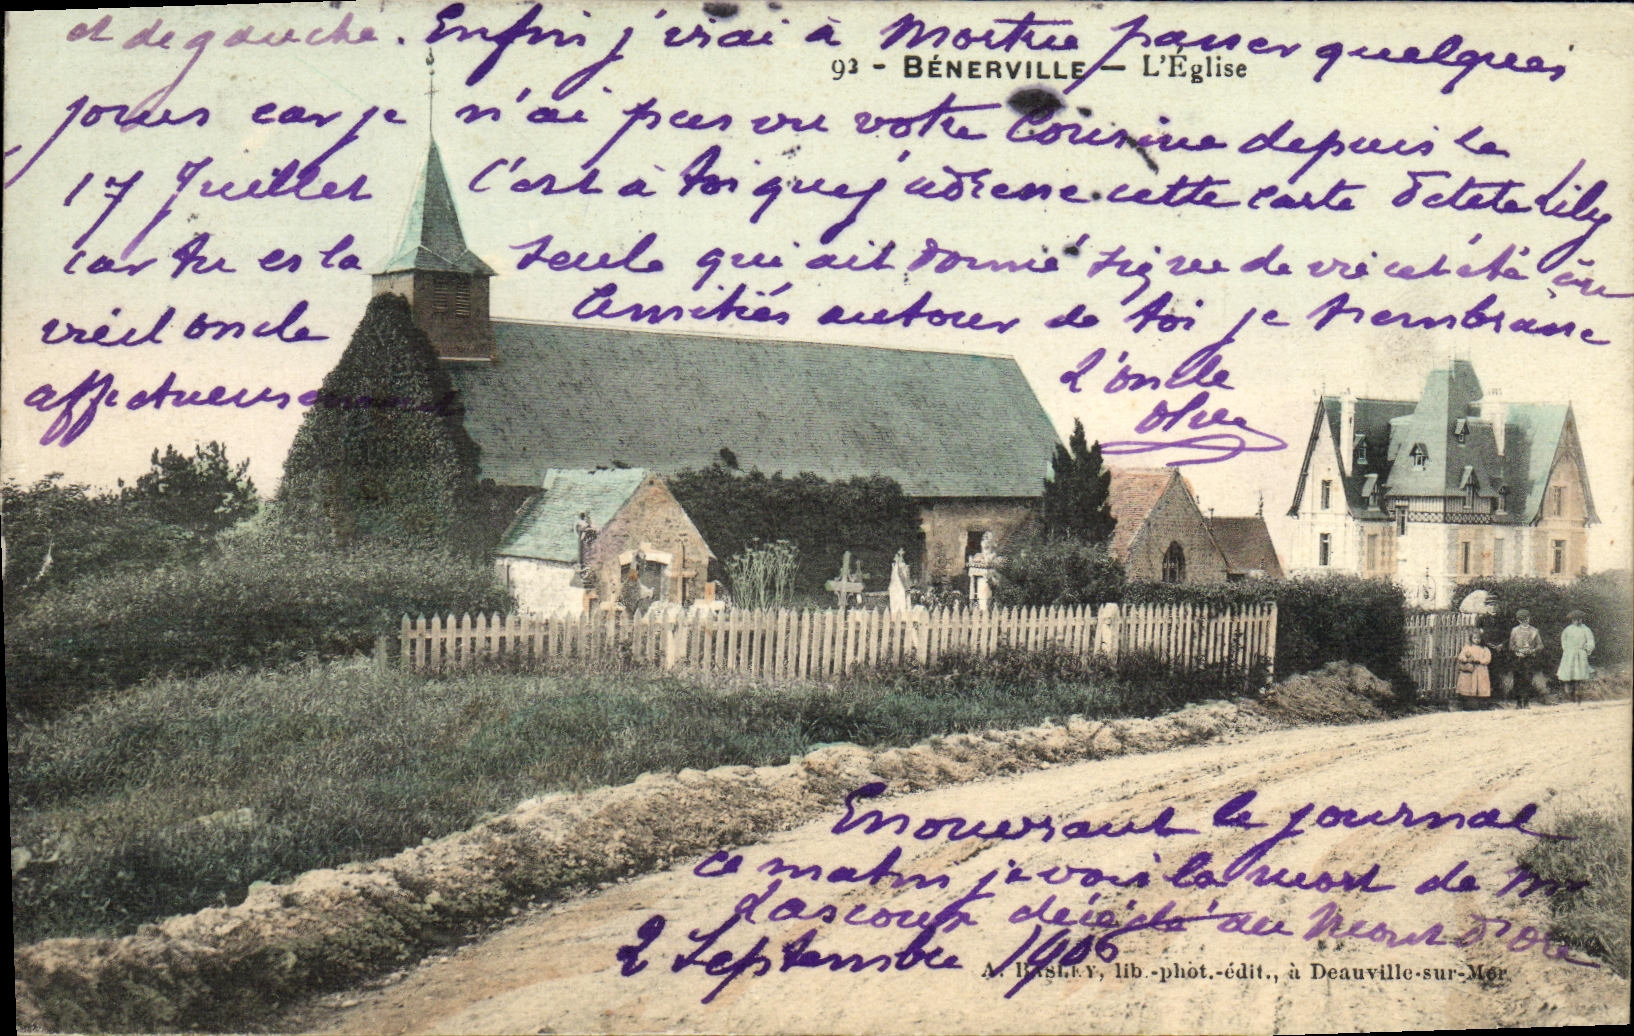 et de gauche. Enfin j'irai à Mortrée passer quelques
93 - BÉNERVILLE — L'Église
jours car je n'ai pas vu votre Cousine depuis le
17 Juillet C'est à toi que j'adresse cette carte Lily
car tu es la seule qui ait donné signe de vie cet été
vieil oncle Amitiés autour de toi je t'embrasse
affectueusement L'oncle
En ouvrant le journal
ce matin je vois la mort de Mr
Lascoux décédé au Mont d'ore
2 Septembre 1906
A. BASLEY, lib.-phot.-édit., à Deauville-sur-Mer